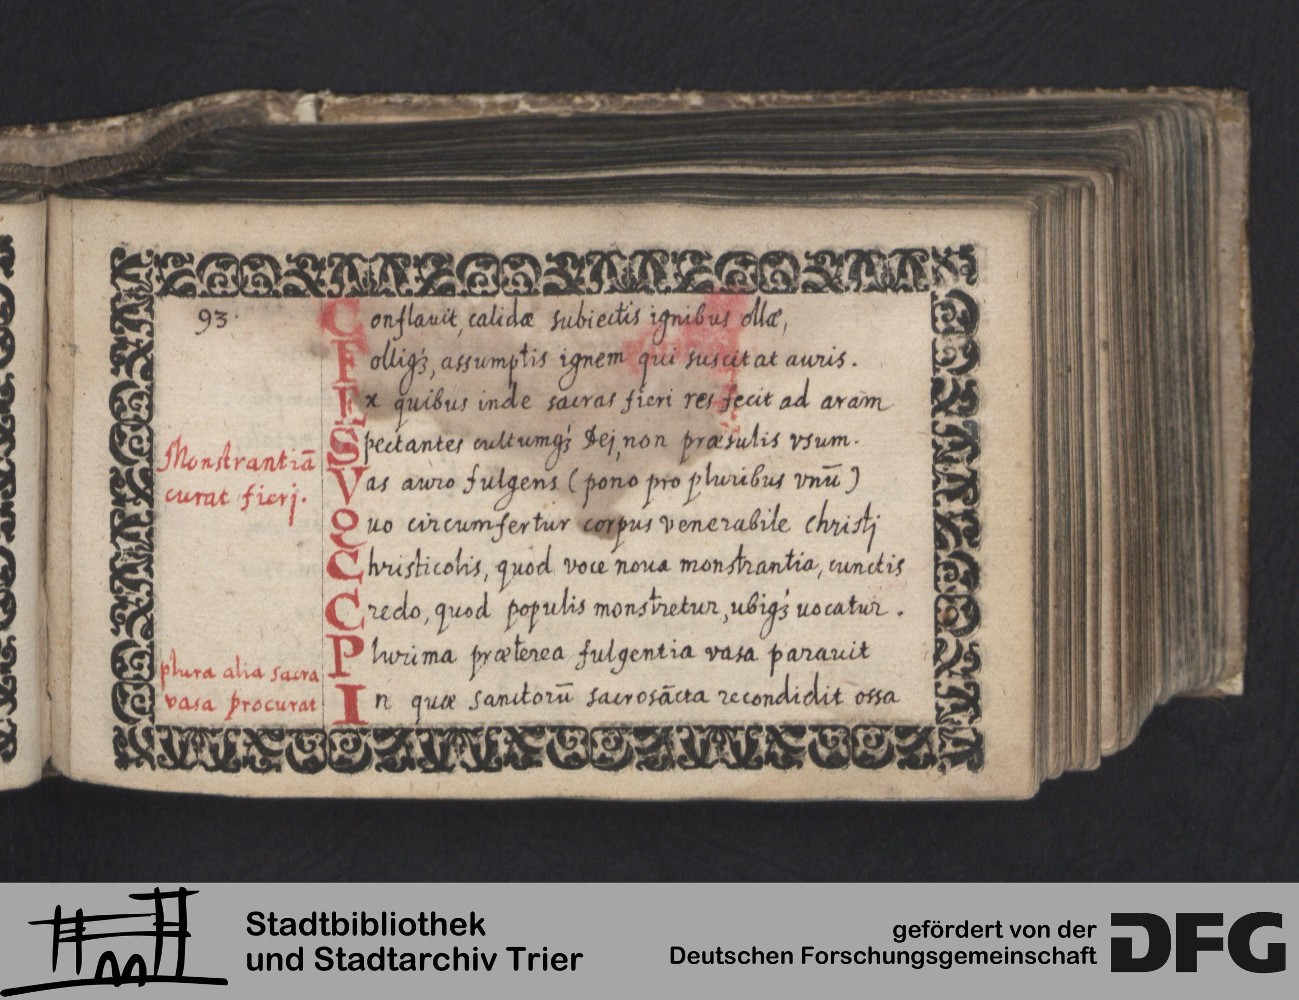 93.
Conflauit, calidæ subiectis ignibus ollæ,
Folligꝫ, assumptis ignem qui suscitat auris.
Ex quibus inde sacras fieri res fecit ad aram
Spectantes cultumqꝫ Dej, non præsulis vsum.
Monstrantiā
curat fierj.
Vas auro fulgens (pono pro pluribus vnū)
Quo circumfertur corpus venerabile christj
Christicolis, quod voce noua monstrantia, cunctis
Credo, quod populis monstretur, ubiqꝫ uocatur.
Plurima præterea fulgentia vasa parauit
plura alia sacra
vasa procurat
In quæ sanctorū sacrosācta recondidit ossa
Stadtbibliothek
und Stadtarchiv Trier
gefördert von der
Deutschen Forschungsgemeinschaft
DFG